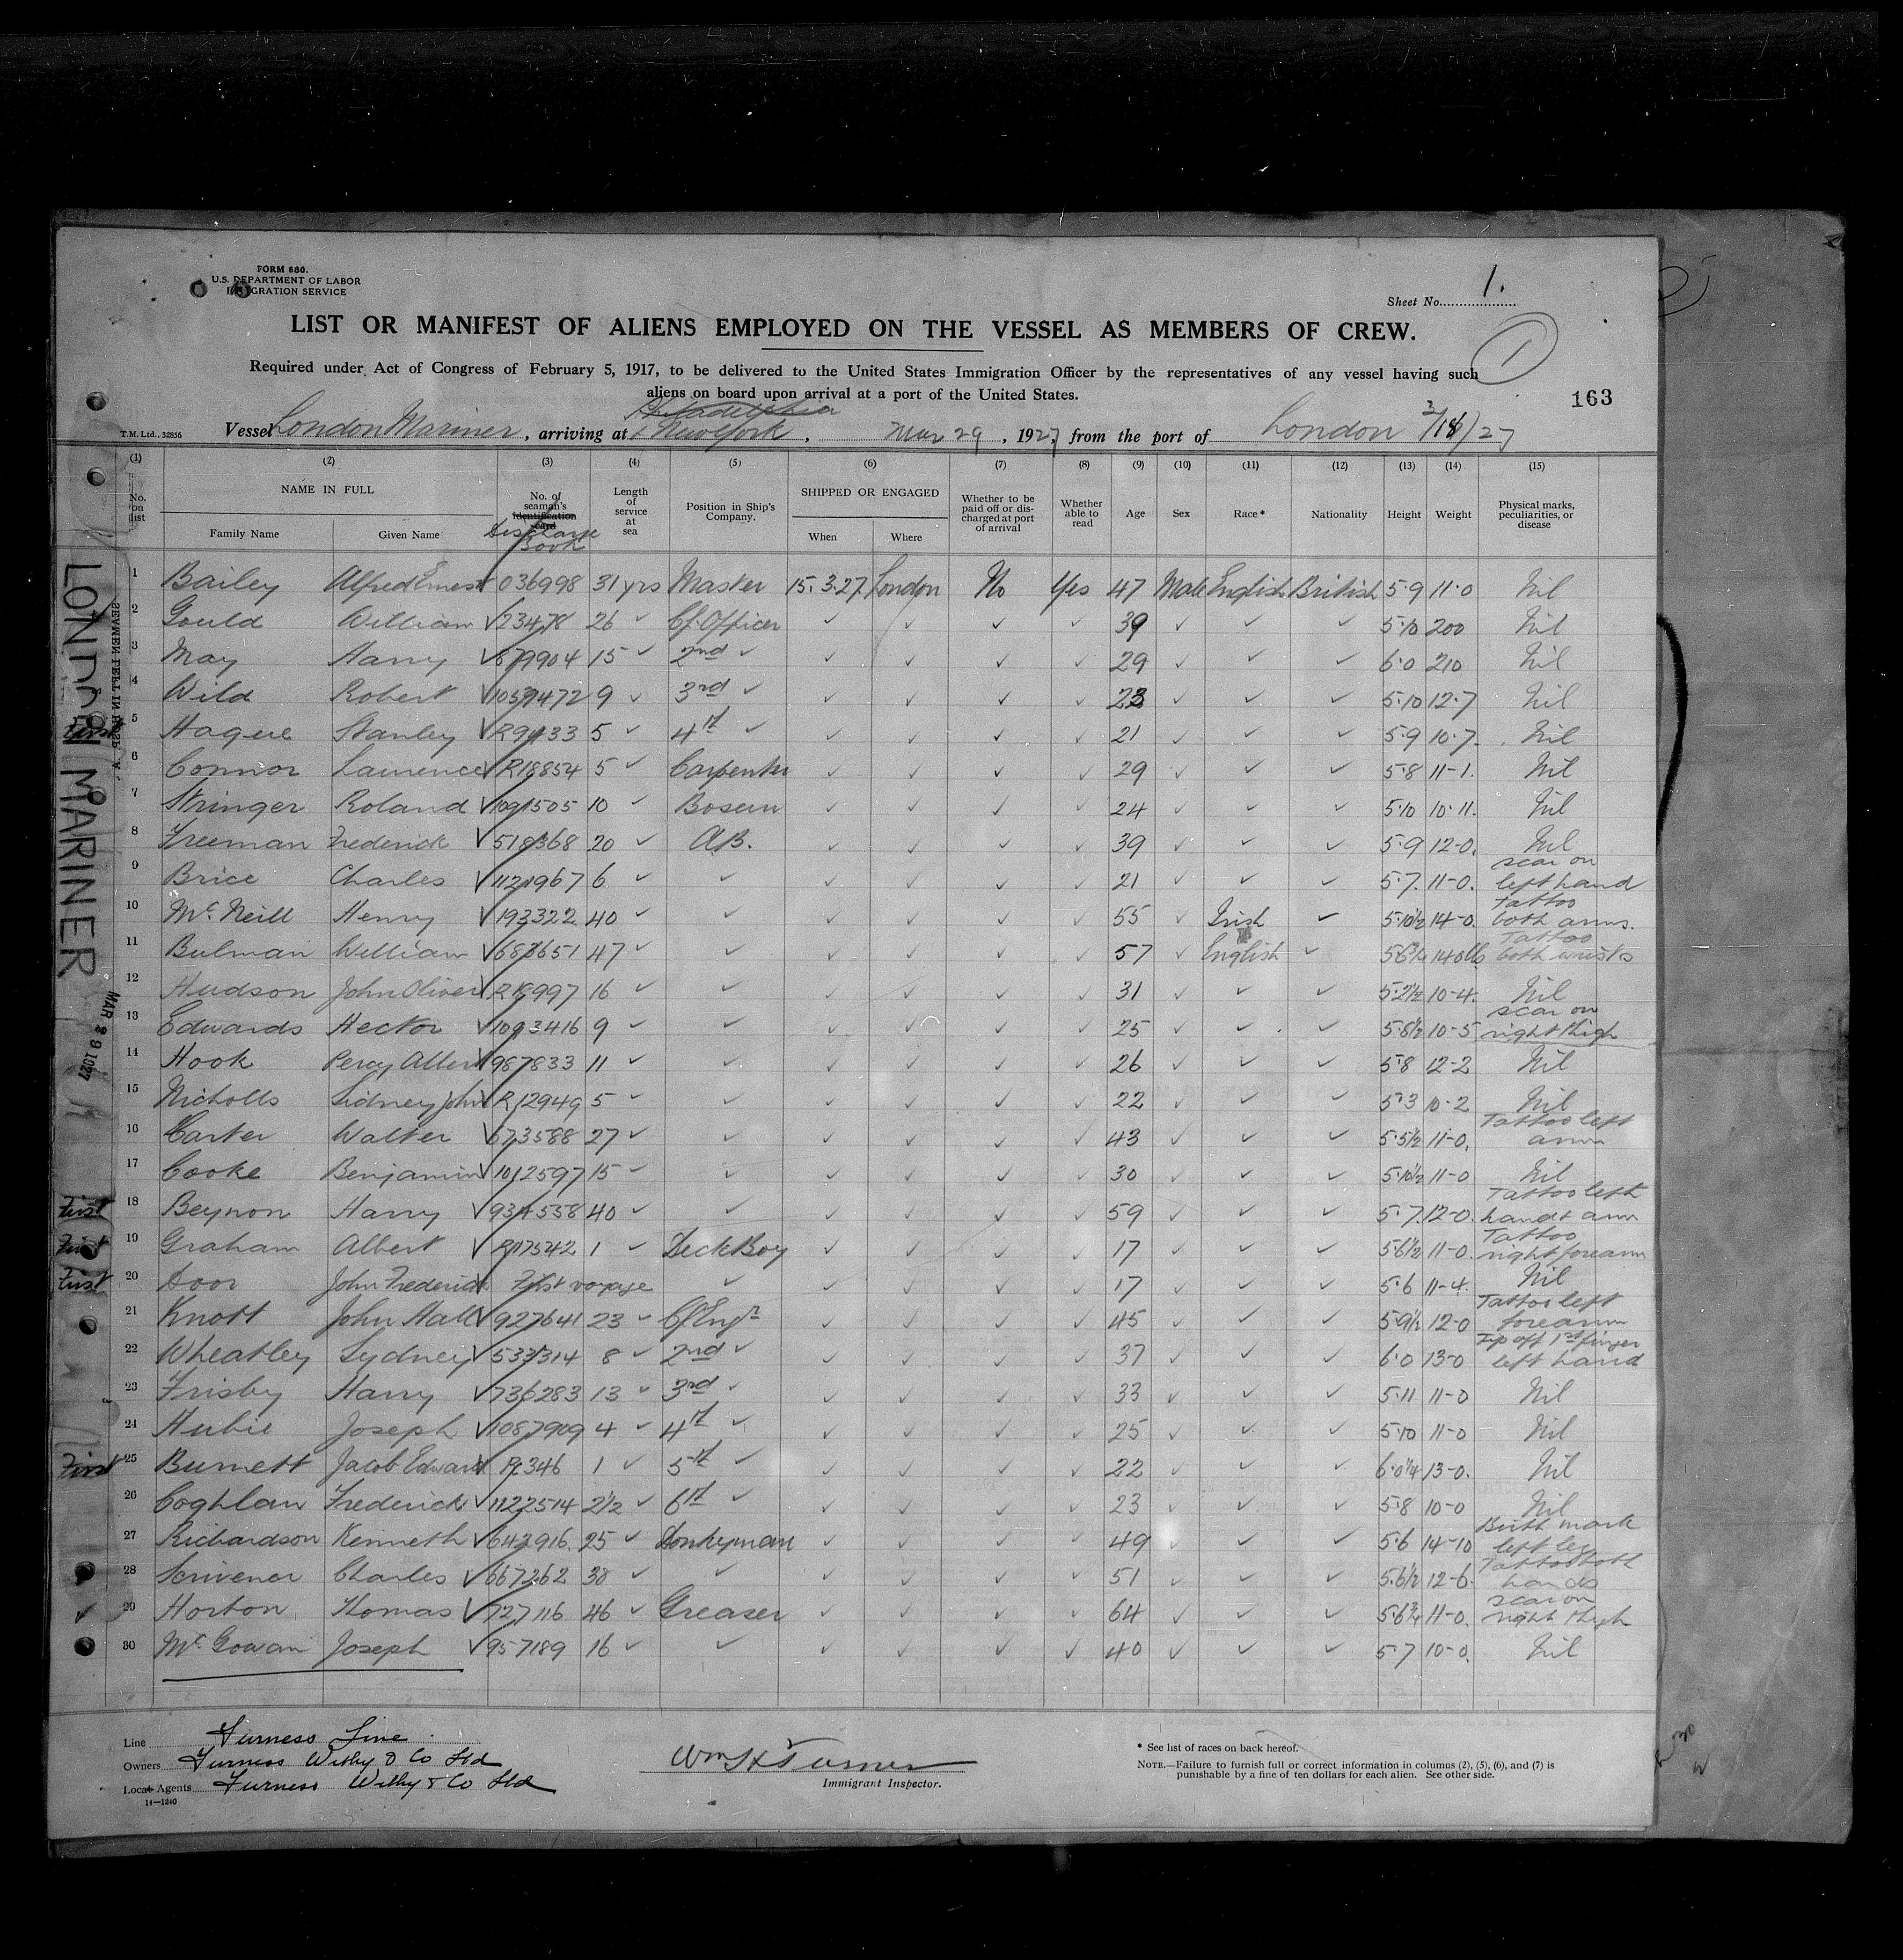 FORM 680.
U.S. DEPARTMENT OF LABOR
IMMIGRATION SERVICE
Sheet No. 1.
LIST OR MANIFEST OF ALIENS EMPLOYED ON THE VESSEL AS MEMBERS OF CREW.
1
Required under Act of Congress of February 5, 1917, to be delivered to the United States Immigration Officer by the representatives of any vessel having such
aliens on board upon arrival at a port of the United States.
163
Philadelphia
T.M. Ltd., 32856 Vessel London Mariner, arriving at New York, Mar 29, 1927, from the port of London 3/18/27
(1) (2) (3) (4) (5) (6) (7) (8) (9) (10) (11) (12) (13) (14) (15)
No. on list NAME IN FULL Family Name Given Name No. of seaman's identification card Discharge Book Length of service at sea Position in Ship's Company. SHIPPED OR ENGAGED When Where Whether to be paid off or discharged at port of arrival Whether able to read Age Sex Race * Nationality Height Weight Physical marks, peculiarities, or disease
LONDON MARINER
SEAMEN LEFT IN HOSP
MAR 29 1927
1 Bailey Alfred Ernest 036998 31 yrs Master 15.3.27 London No Yes 47 Male English British 5·9 11·0 Nil
2 Gould William ✓ 23478 26 ✓ Cf. Officer ✓ ✓ ✓ ✓ 39 ✓ ✓ ✓ 5·10 200 Nil
3 May Harry ✓ 679904 15 ✓ 2nd ✓ ✓ ✓ ✓ ✓ 29 ✓ ✓ ✓ 6·0 210 Nil
4 Wild Robert ✓ 1059472 9 ✓ 3rd ✓ ✓ ✓ ✓ ✓ 23 ✓ ✓ ✓ 5·10 12·7 Nil
First 5 Hague Stanley ✓ 5 ✓ 4th ✓ ✓ ✓ ✓ ✓ 21 ✓ ✓ ✓ 5·9 10·7 Nil
6 Connor Laurence ✓ R18854 5 ✓ Carpenter ✓ ✓ ✓ ✓ 29 ✓ ✓ ✓ 5·8 11-1. Nil
7 Stringer Roland ✓ 1091505 10 ✓ Bosun ✓ ✓ ✓ ✓ 24 ✓ ✓ ✓ 5·10 10·11. Nil
8 Freeman Frederick ✓ 518368 20 ✓ A.B. ✓ ✓ ✓ ✓ 39 ✓ ✓ ✓ 5·9 12-0. Nil
9 Brice Charles ✓ 1121967 6 ✓ ✓ ✓ ✓ ✓ ✓ 21 ✓ ✓ ✓ 5·7. 11-0. scar on left hand
10 McNeill Henry ✓ 193322 40 ✓ ✓ ✓ ✓ ✓ ✓ 55 ✓ Irish ✓ 5·10½ 14-0. Tattoo both arms.
11 Bulman William ✓ 683651 47 ✓ ✓ ✓ ✓ ✓ ✓ 57 ✓ English ✓ 140lb Tattoo both wrists
12 Hudson John Oliver 16 ✓ ✓ ✓ ✓ ✓ ✓ 31 ✓ ✓ ✓ 5·2½ 10-4. Nil
13 Edwards Hector ✓ 1093416 9 ✓ ✓ ✓ ✓ ✓ ✓ 25 ✓ ✓ ✓ 5·8½ 10-5 scar on right thigh
14 Hook Percy Albert 987833 11 ✓ ✓ ✓ ✓ ✓ ✓ 26 ✓ ✓ ✓ 5·8 12-2 Nil
15 Nicholls Sidney John R12949 5 ✓ ✓ ✓ ✓ ✓ ✓ 22 ✓ ✓ ✓ 5·3 10-2 Nil
16 Carter Walter ✓ 673588 27 ✓ ✓ ✓ ✓ ✓ ✓ 43 ✓ ✓ ✓ 5·5½ 11-0. Tattoo left arm
17 Cooke Benjamin ✓ 1012597 15 ✓ ✓ ✓ ✓ ✓ ✓ 30 ✓ ✓ ✓ 5·10½ 11-0 Nil
First 18 Beynon Harry ✓ 934558 40 ✓ ✓ ✓ ✓ ✓ ✓ 59 ✓ ✓ ✓ 5·7. 12-0. Tattoo left hand & arm
First 19 Graham Albert ✓ 1 ✓ Deck Boy ✓ ✓ ✓ ✓ 17 ✓ ✓ ✓ 5·6½ 11-0. Tattoo right forearm
First 20 Door John Frederick First voyage ✓ ✓ ✓ ✓ ✓ 17 ✓ ✓ ✓ 5·6 11-4. Nil
21 Knott John Hall ✓ 927641 23 ✓ Cf Engr ✓ ✓ ✓ ✓ 45 ✓ ✓ ✓ 5·9½ 12-0 Tattoo left forearm
22 Wheatley Sydney ✓ 533314 8 ✓ 2nd ✓ ✓ ✓ ✓ ✓ 37 ✓ ✓ ✓ 6·0 13-0 Tip off 1st finger left hand
23 Frisby Harry ✓ 736283 13 ✓ 3rd ✓ ✓ ✓ ✓ ✓ 33 ✓ ✓ ✓ 5·11 11-0 Nil
24 Hubie Joseph ✓ 1087909 4 ✓ 4th ✓ ✓ ✓ ✓ ✓ 25 ✓ ✓ ✓ 5·10 11-0 Nil
First 25 Burnett Jacob Edward 1 ✓ 5th ✓ ✓ ✓ ✓ ✓ 22 ✓ ✓ ✓ 6·0¼ 13-0. Nil
26 Coghlan Frederick ✓ 1122514 2½ ✓ 6th ✓ ✓ ✓ ✓ ✓ 23 ✓ ✓ ✓ 5·8 10-0 Nil
27 Richardson Kenneth ✓ 642916 25 ✓ Donkeyman ✓ ✓ ✓ ✓ 49 ✓ ✓ 5·6 14-10 Birth mark left leg
28 Scrivener Charles ✓ 667262 38 ✓ ✓ ✓ ✓ ✓ ✓ 51 ✓ ✓ ✓ 5·6½ 12-6. Tattoo both hands
✓ 29 Horton Thomas ✓ 727116 46 ✓ Greaser ✓ ✓ ✓ ✓ 64 ✓ ✓ ✓ 5·6¾ 11-0. scar on right thigh
30 McGowan Joseph ✓ 957189 16 ✓ ✓ ✓ ✓ ✓ ✓ 40 ✓ ✓ ✓ 5·7 10-0. Nil
Line Furness Line
Owners Furness Withy & Co Ltd
Local Agents Furness Withy & Co Ltd
14—1240
Wm H Turner
Immigrant Inspector.
* See list of races on back hereof.
NOTE.—Failure to furnish full or correct information in columns (2), (5), (6), and (7) is
punishable by a fine of ten dollars for each alien. See other side.